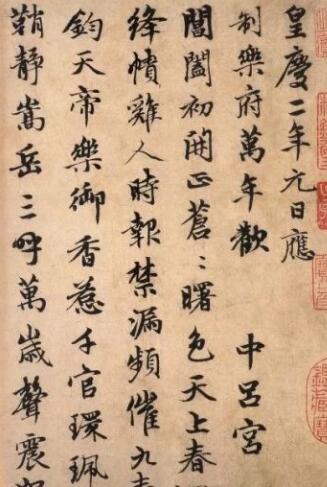 皇慶二年元日應
制樂府萬年歡　中呂宮
閶闔初開正蒼〻曙色天上春
絳幘雞人時報禁漏頻催九奏
鈞天帝樂御香惹千官環珮
鞘靜嵩岳三呼萬歲聲震